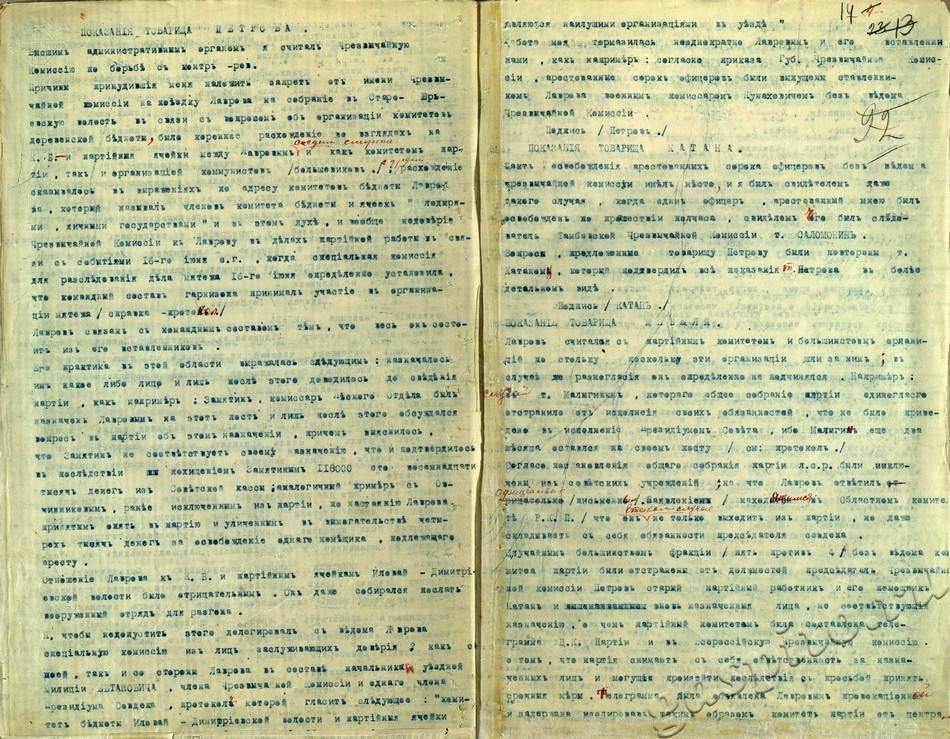 ПОКАЗАНІЯ ТОВАРИЩА ПЕТРОВА.
Высшимъ административнымъ органомъ я считалъ Чрезвычайную
Комиссію по борьбѣ съ контръ-рев.
Причины принудившія меня наложить запретъ отъ имени Чрезвы-
чайной комиссіи на поѣздку Лаврова на собраніе въ Старо-Юрь-
евскую волость въ связи съ вопросомъ объ организаціи комитетовъ
деревенской бѣдноты, было коренное расхожденіе во взглядахъ на
К.Б. и партійныя ячейки между Лавровымъ и какъ комитетомъ пар-
тіи, такъ и организаціей коммунистовъ /большевиковъ./: расхожденіе
сказывалось въ выраженіяхъ по адресу комитетовъ бѣдноты Лавро-
ва, который называлъ членовъ комитета бѣдноты и ячеекъ "лодыря-
ми, яичными государствами" и въ этомъ духѣ, и вообще недовѣріе
Чрезвычайной Комиссіи къ Лаврову въ дѣлахъ партійной работы въ свя-
зи съ событіями 16-го іюня с.г., когда спеціальная комиссія
для разслѣдованія дѣла мятежа 16-го іюня опредѣленно установила,
что командный составъ гарнизона принималъ участіе въ организа-
ціи мятежа /справка - протокол/
Лавровъ связанъ съ команднымъ составомъ тѣмъ, что весь онъ состо-
итъ изъ его ставленниковъ.
Его практика въ этой области выражалась слѣдующимъ: назначалось
имъ какое либо лицо и лишь послѣ этого доводилось до свѣдѣнія
партіи, какъ напримѣръ: Замятинъ, комиссаръ Отдѣла былъ
назначенъ Лавровымъ на этотъ постъ и лишь послѣ этого обсуждался
вопросъ въ партіи объ этомъ назначеніи, причемъ выяснилось,
что Замятинъ не соотвѣтствуетъ своему назначенію, что и подтвердилось
въ послѣдствіи похищеніемъ Замятинымъ 118000 сто восемнадцати
тысячъ денегъ изъ Совѣтской кассы; аналогичный примѣръ съ Ов-
чинниковымъ, ранѣе исключеннымъ изъ партіи, по настоянію Лаврова
принятымъ опять въ партію и уличеннымъ въ вымогательствѣ четы-
рехъ тысячъ денегъ за освобожденіе одного помѣщика, подлежащаго
аресту.
Отношеніе Лаврова къ К.Б. и партійнымъ ячейкамъ Иловай-Димитрі-
евской волости было отрицательнымъ. Онъ даже собирался послать
вооруженный отрядъ для разгона.
Я, чтобы недопустить этого делегировалъ съ вѣдома Лаврова
спеціальную комиссію изъ лицъ заслуживающихъ довѣрія какъ съ
моей, такъ и со стороны Лаврова въ составѣ начальника уѣздной
милиціи, члена Чрезвычайной Комиссіи и одного члена
Президіума Совдепа, протоколъ которой гласитъ слѣдующее: "коми-
тетъ бѣдноты Иловай-Димитріевской волости и партійныя ячейки
14
13
92
являются наилучшими организаціями въ уѣздѣ"
Работа моя тормазилась неоднократно Лавровымъ и его ставленни-
ками, какъ напримѣръ: согласно приказа Губ. Чрезвычайной Комис-
сіи, арестованные сорокъ офицеровъ были выпущены ставленни-
комъ Лаврова военнымъ комиссаромъ Кунаховичемъ безъ вѣдома
Чрезвычайной Комиссіи.
Подпись /Петровъ./
ПОКАЗАНІЯ ТОВАРИЩА КАТАНА.
Фактъ освобожденія арестованныхъ сорока офицеровъ безъ вѣдома
чрезвычайной комиссіи имѣлъ мѣсто, и я былъ свидѣтелемъ даже
такого случая, когда одинъ офицеръ, арестованный мною былъ
освобожденъ по прошествіи получаса, свидѣлемъ чего былъ слѣдо-
ватель Тамбовской Чрезвычайной Комиссіи т. САЛОМОНИНЪ.
Вопросы, предложенные товарищу Петрову были повторены т.
Катаному, который подтвердилъ всѣ показанія т. Петрова въ болѣе
детальномъ видѣ.
Подпись /КАТАНЪ./
ПОКАЗАНІЯ ТОВАРИЩА
Лавровъ считался съ партійнымъ комитетомъ и большинствомъ органи-
цій по стольку поскольку эти организаціи шли за нимъ; въ
случаѣ же разногласія онъ опредѣленно не подчинялся. Напримѣръ:
случай т. Малыгинымъ, котораго общее собраніе партіи единогласно
отстранило отъ исполненія своихъ обязанностей, что не было приве-
дено въ исполненіе президіумомъ Совѣта, ибо Малыгинъ еще два
мѣсяца остался на своемъ посту /см: протоколъ/
Согласно постановленія общаго собранія партіи л.с.р. были исклю-
чены изъ совѣтскихъ учрежденій; на что Лавровъ отвѣтилъ от-
рицательно /письменно Заявленіемъ находящимся въ Областномъ комите-
тѣ Р.К.П./ что онъ в такомъ случае не только выходитъ изъ партіи, но даже
складываетъ съ себя обязанности предсѣдателя совдепа.
Случайнымъ большинствомъ фракціи /пять противъ 4/ безъ вѣдома ко-
митеа партіи были отстранены отъ должностей предсѣдатель Чрезвычай-
ной комиссіи Петровъ старый партійный работникъ и его помощникъ
Катанъ и вновь назначенныя лица, не соотвѣтствующія
назначенію, о чемъ партійнымъ комитетомъ была составлена теле-
грамма Ц.К. Партіи и въ Всероссійскую чрезвычайную комиссію
о томъ, что партія снимаетъ съ себя отвѣтственность за назна-
ченныхъ лицъ и могущія произойти послѣдствія съ просьбой принять
срочныя мѣры. Телеграмма была объявлена Лавровымъ провокаціонной
и задержана изолировавъ такимъ образомъ комитетъ партіи отъ центра